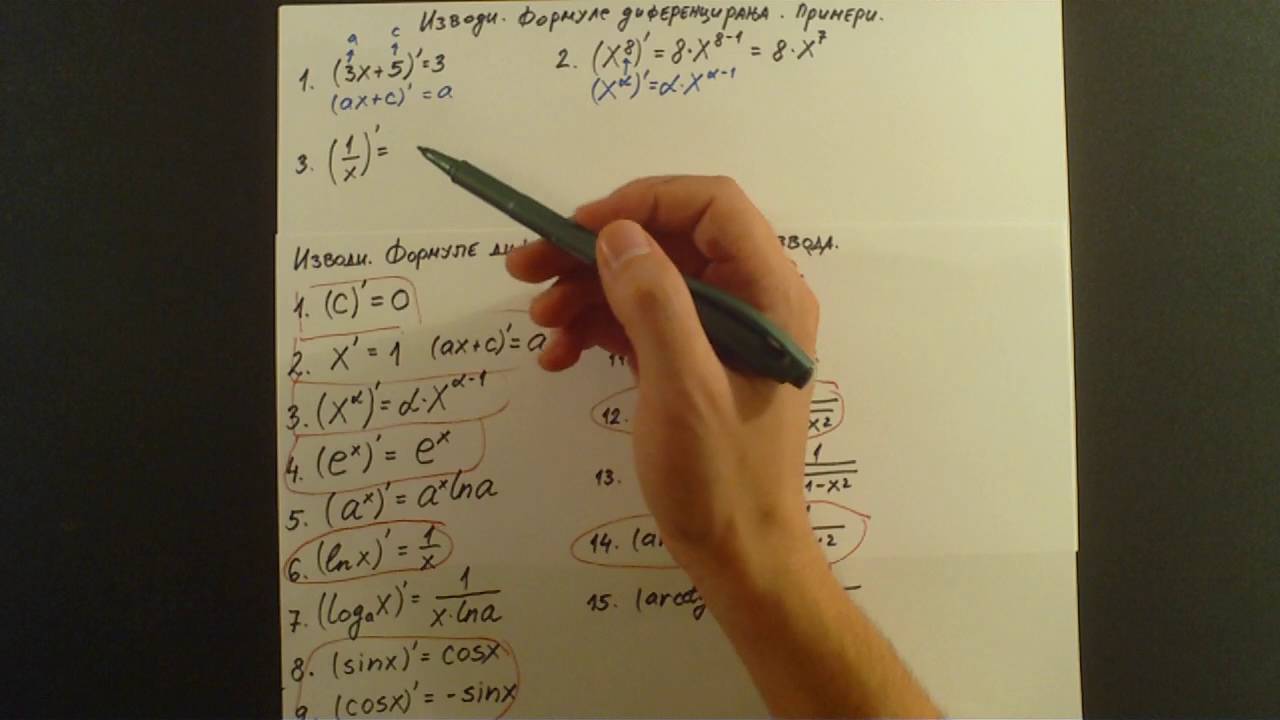 Изводи. Формуле диференцирања. Примери.
a c
1. (3x+5)' = 3
(ax+c)' = a
2. (x⁸)' = 8·x⁸⁻¹ = 8·x⁷
(x^α)' = α·x^(α-1)
3. (1/x)' =
Изводи. Формуле
1. (c)' = 0
2. x' = 1 (ax+c)' = a
3. (x^α)' = α·x^(α-1)
4. (e^x)' = e^x
5. (a^x)' = a^x ln a
6. (ln x)' = 1/x
7. (logₐx)' = 1/(x·ln a)
8. (sinx)' = cosx
9. (cosx)' = -sinx
12.
13.
14.
15.